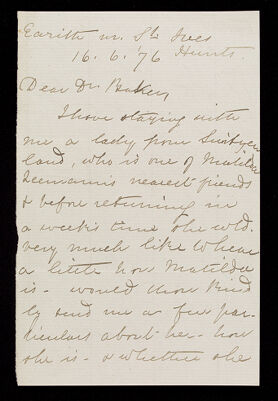 Earith nr. St. Ives
16.6.'76 Hunts.
Dear Dr. Baker,
I have staying with
me a lady from Switzer
land, who is one of Matilda
nearest friends
& before returning in
a week's time she wld.
very much like to hear
a little how Matilda
is - would thou kind
ly send me a few par-
ticulars about her - how
she is - & whether she